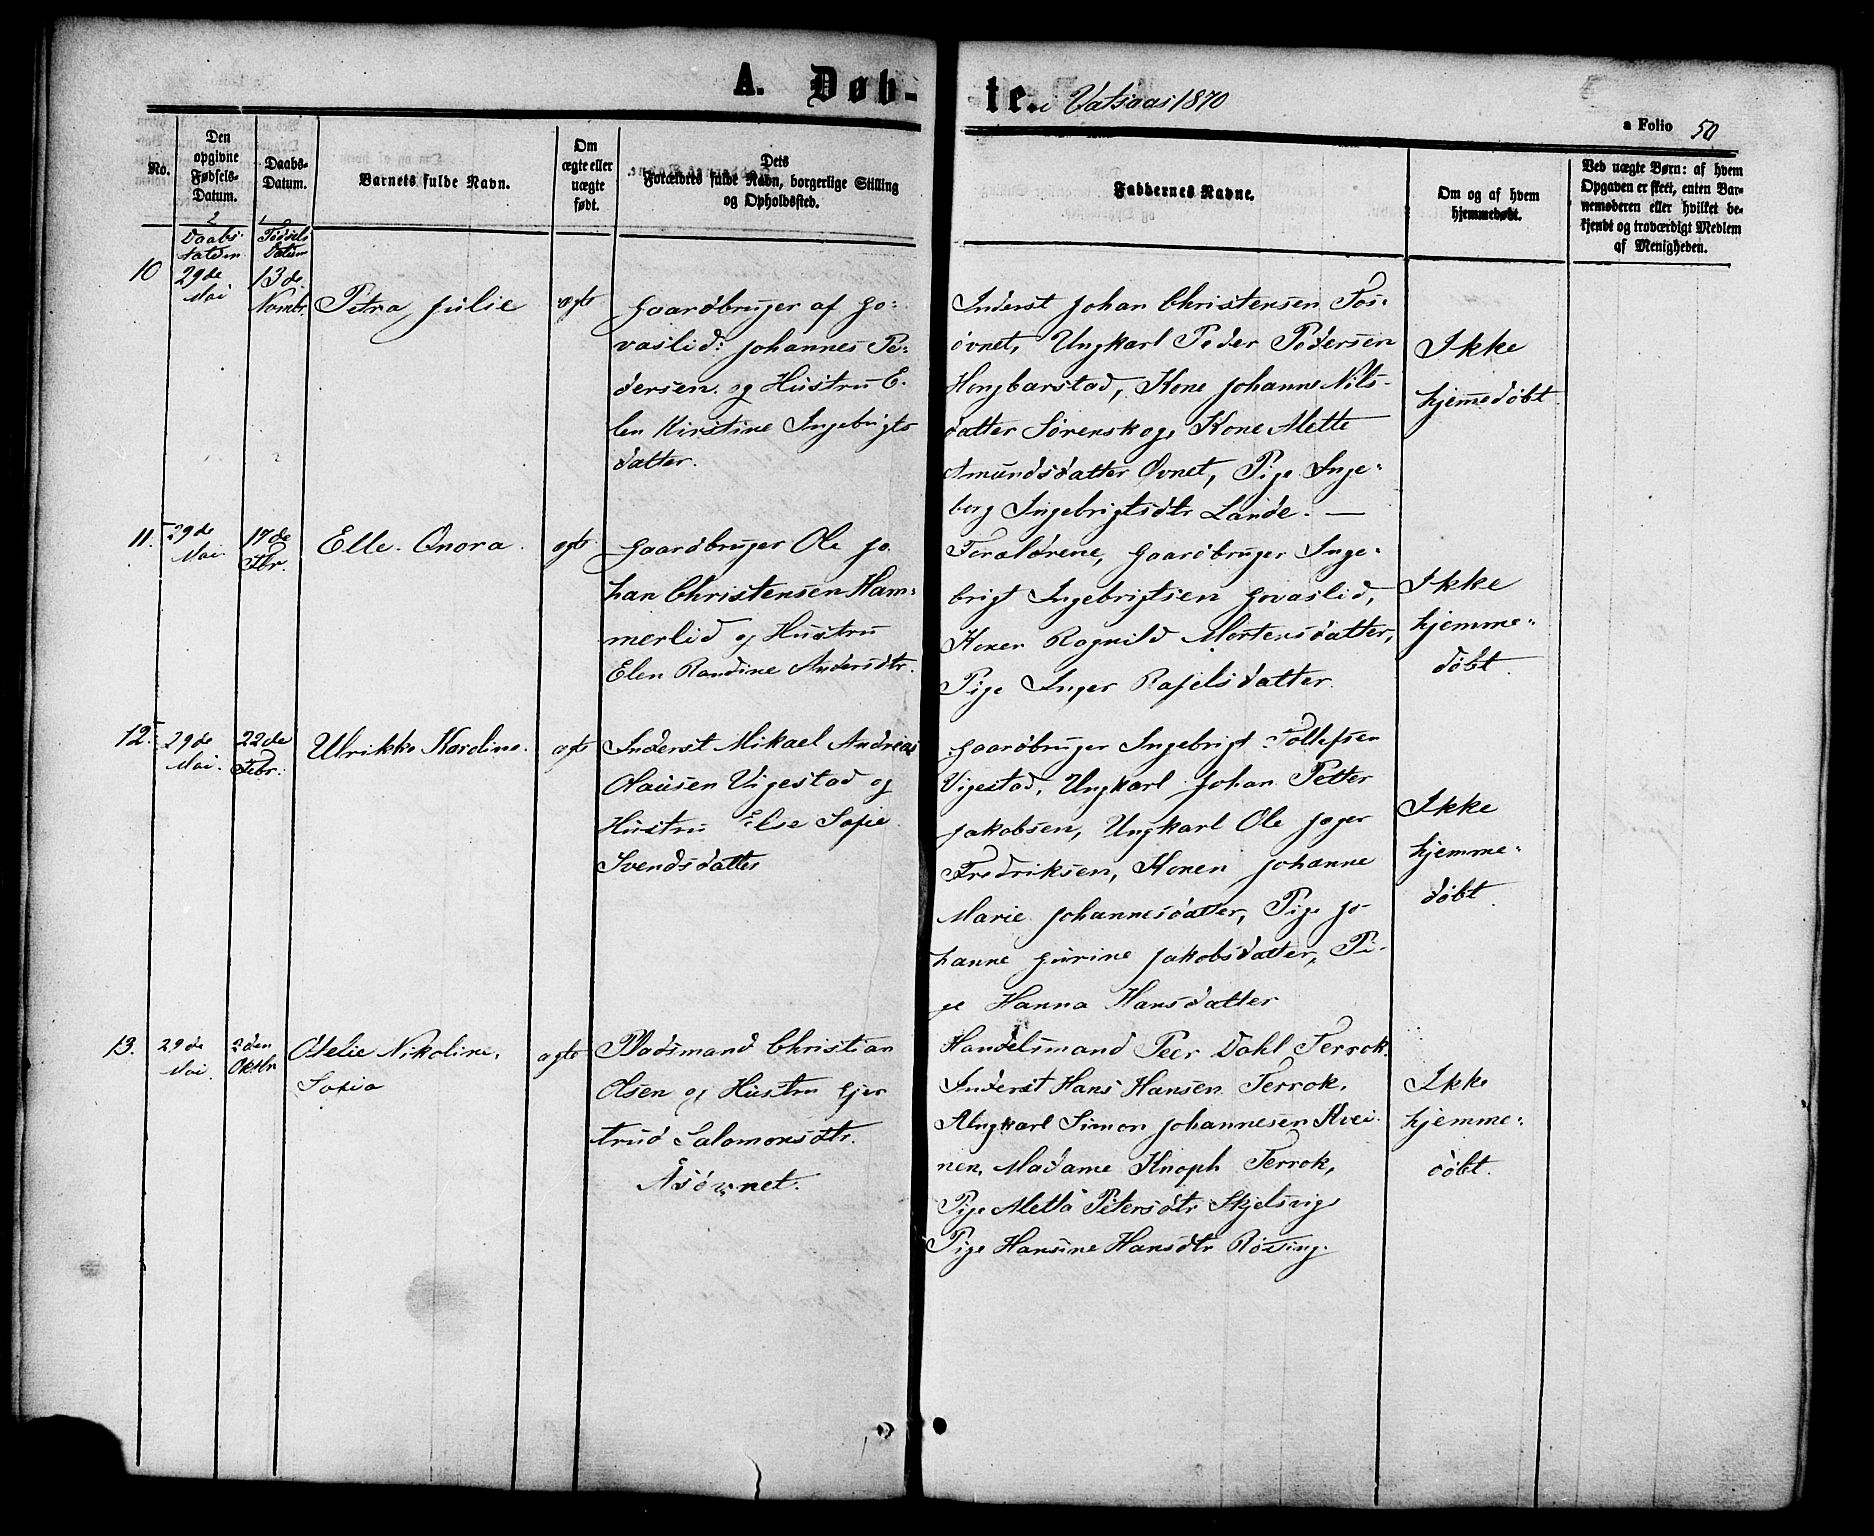 A. Døb-te. i Vatsaas 1870
a Folio 50
No.
Den opgivne Fødsels-Datum.
Daabs-Datum.
Barnets fulde Navn.
Om ægte eller uægte født.
Dets Forældres fulde Navn, borgerlige Stilling og Opholdssted.
Faddernes Navne.
Om og af hvem hjemmedøbt.
Ved uægte Børn: af hvem Opgaven er skeet, enten Barnemoderen eller hvilket bekjendt og troværdigt Medlem af Menigheden.
2 Daabs Datum
1 Fødsels Datum
10
29de Mai
13de Novmbr.
Petra Julie
ægte
Gaardbruger af Jo-
vaslid: Johannes Pe-
dersen og Hustru E-
len Kirstine Ingebrigts
datter.
Inderst Johan Christensen Fos-
øvnet, Ungkarl Peder Pedersen
Hongbarstad, Kone Johanne Nils-
datter Sørenskog, Kone Mette
Amundsdatter Øvnet, Pige Inge-
borg Ingebrigtsdtr Lande. —
Ikke
hjemmedøbt
11.
29de Mai
17de Fbr.
Elle Onora
ægte
Gaardbruger Ole Jo
han Christensen Ham-
merlid og Hustru
Elen Randine Andersdtr.
Forældrene, Gaardbruger Inge-
brigt Ingebrigtsen Jovaslid,
Konen Ragnild Mortensdatter,
Pige Inger Rafelsdatter.
Ikke
hjemme-
døbt
12.
29de Mai.
22de Febr.
Ulrikke Karoline.
ægte
Inderst Mikael Andreas
Olausen Vigestad og
Hustru Else Sofie
Svendsdatter
Gaardbruger Ingebrigt Tollefsen
Vigestad, Ungkarl Johan Petter
Jakobsen, Ungkarl Ole Jøger
Fredriksen, Konen Johanne
Marie Johannesdatter, Pige Jo-
hanne Gurine Jakobsdatter, Pi-
ge Hanna Hansdatter
Ikke
hjemme-
døbt.
13.
29de Mai.
2den Oktbr
Otelie Nikoline,
Sofia
ægte
Pladsmand Christian
Olsen og Hustru Gjer
trud Salomonsdtr.
Åsøvnet.
Handelsmand Peer Dahl Terrok.
Inderst Hans Hansen Terrok,
Ungkarl Simon Johannesen Kvei-
nen, Madame Knoph Terrok,
Pige Metta Petersdtr Skjelsvig
Pige Hansine Hansdtr Røssing.
Ikke
hjemme-
døbt.